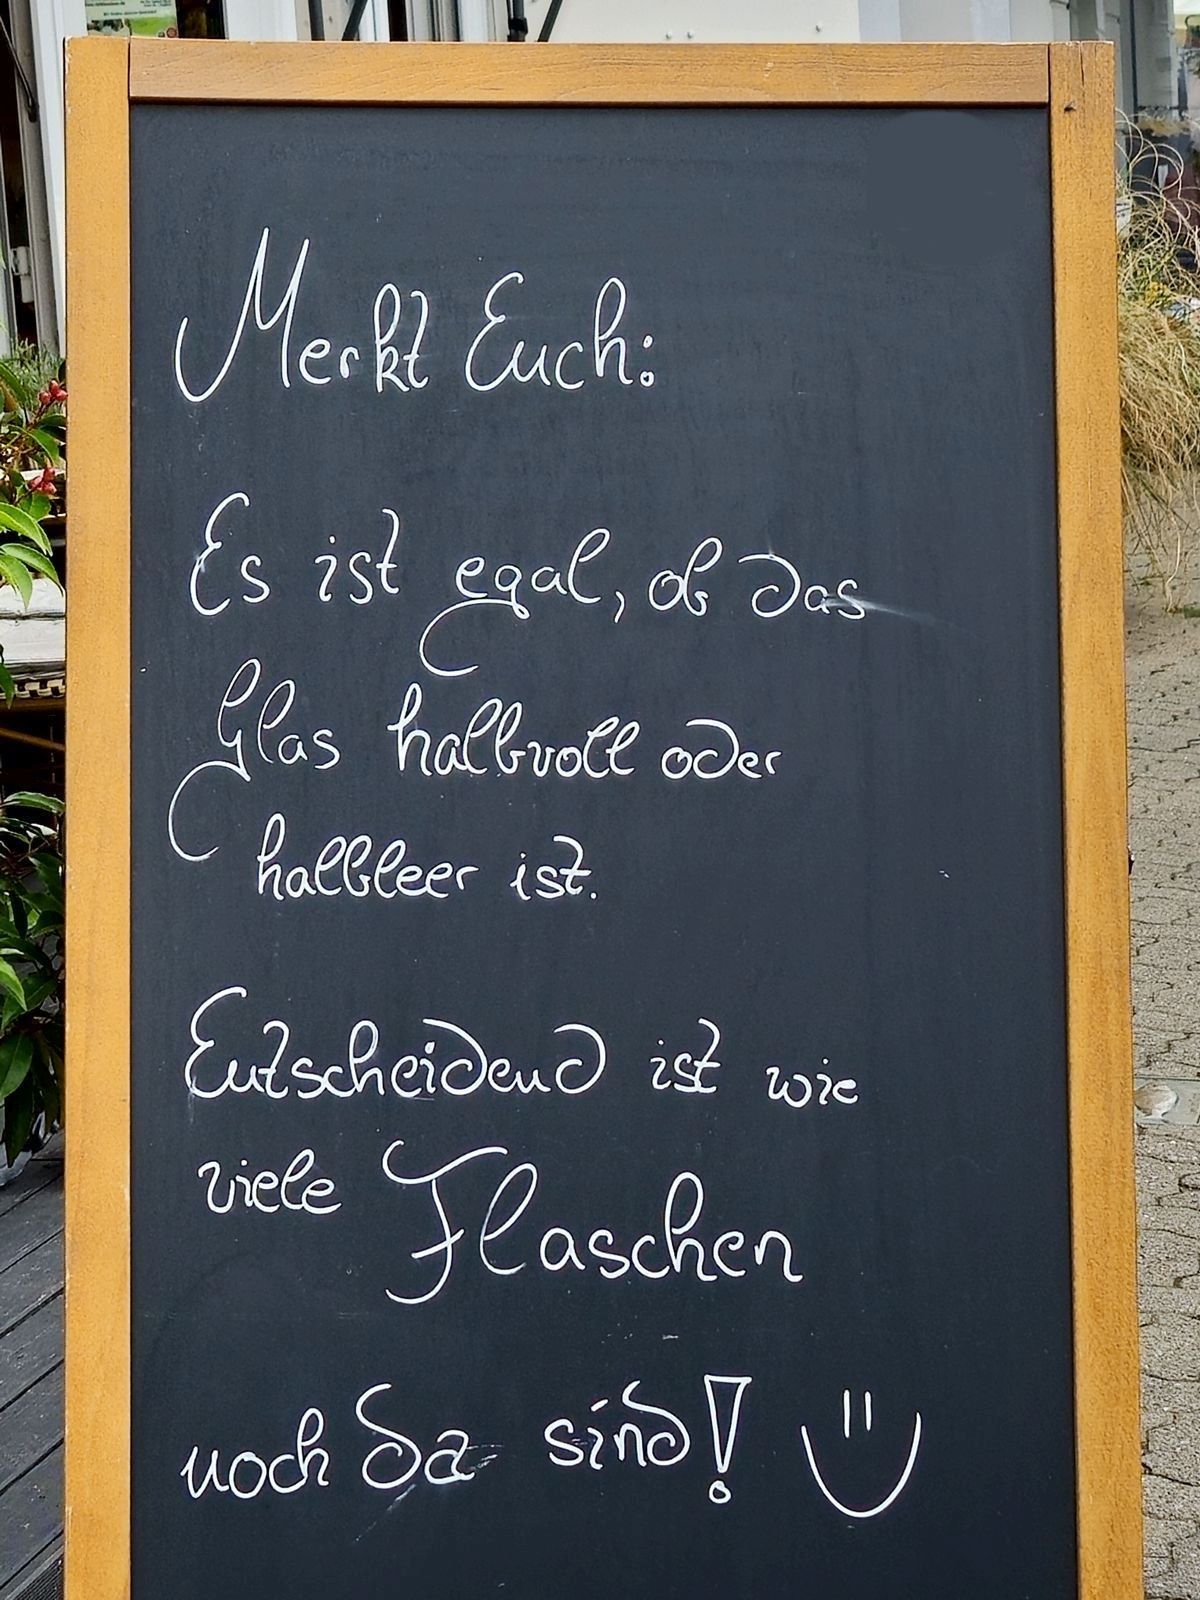 Merkt Euch:
Es ist egal, ob das
Glas halbvoll oder
halbleer ist.
Entscheidend ist wie
viele Flaschen
noch da sind!